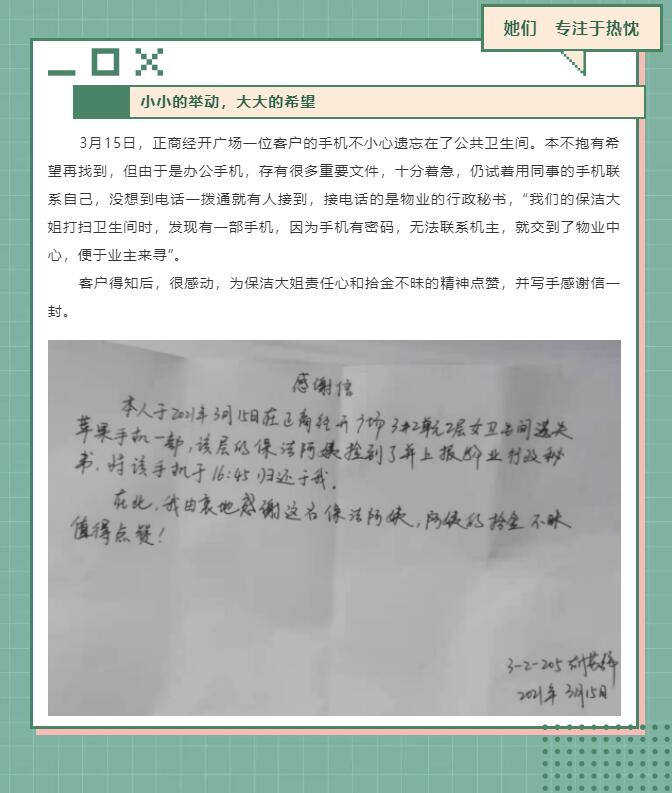 她们 专注于热忱
小小的举动，大大的希望
3月15日，正商经开广场一位客户的手机不小心遗忘在了公共卫生间。本不抱有希
望再找到，但由于是办公手机，存有很多重要文件，十分着急，仍试着用同事的手机联
系自己，没想到电话一拨通就有人接到，接电话的是物业的行政秘书，“我们的保洁大
姐打扫卫生间时，发现有一部手机，因为手机有密码，无法联系机主，就交到了物业中
心，便于业主来寻”。
客户得知后，很感动，为保洁大姐责任心和拾金不昧的精神点赞，并写手感谢信一
封。
感谢信
本人于2021年3月15日在正商经开广场3#2单元2层女卫生间遗失
苹果手机一部，该层的保洁阿姨捡到了并上报物业行政秘
书，将该手机于16:45归还于我。
在此，我由衷地感谢这名保洁阿姨，阿姨的拾金不昧
值得点赞！
3-2-205
2021年3月15日